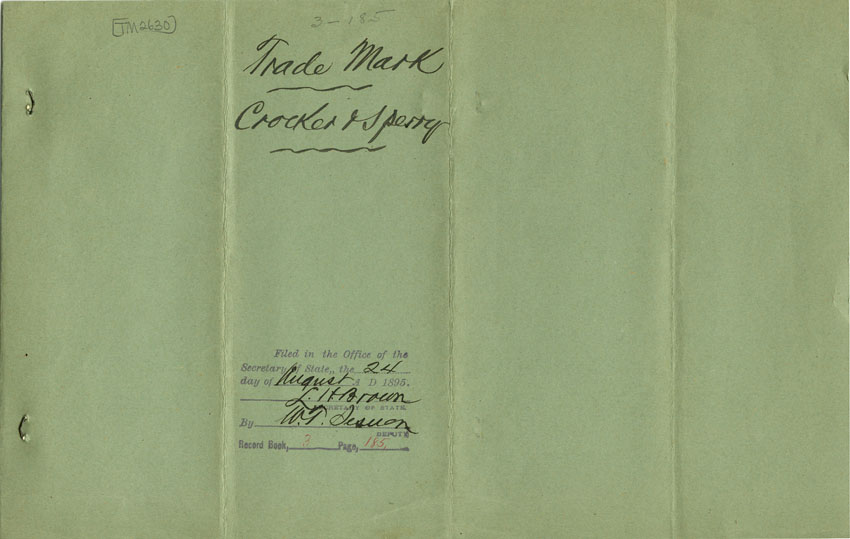 [TM2630]
3-185
Trade Mark
Crocker & Sperry
Filed in the Office of the
Secretary of State,, the 24
day of August A D 1895.
L. H Brown
SECRETARY OF STATE.
By W. T.
DEPUTY
Record Book, 3 Page, 185